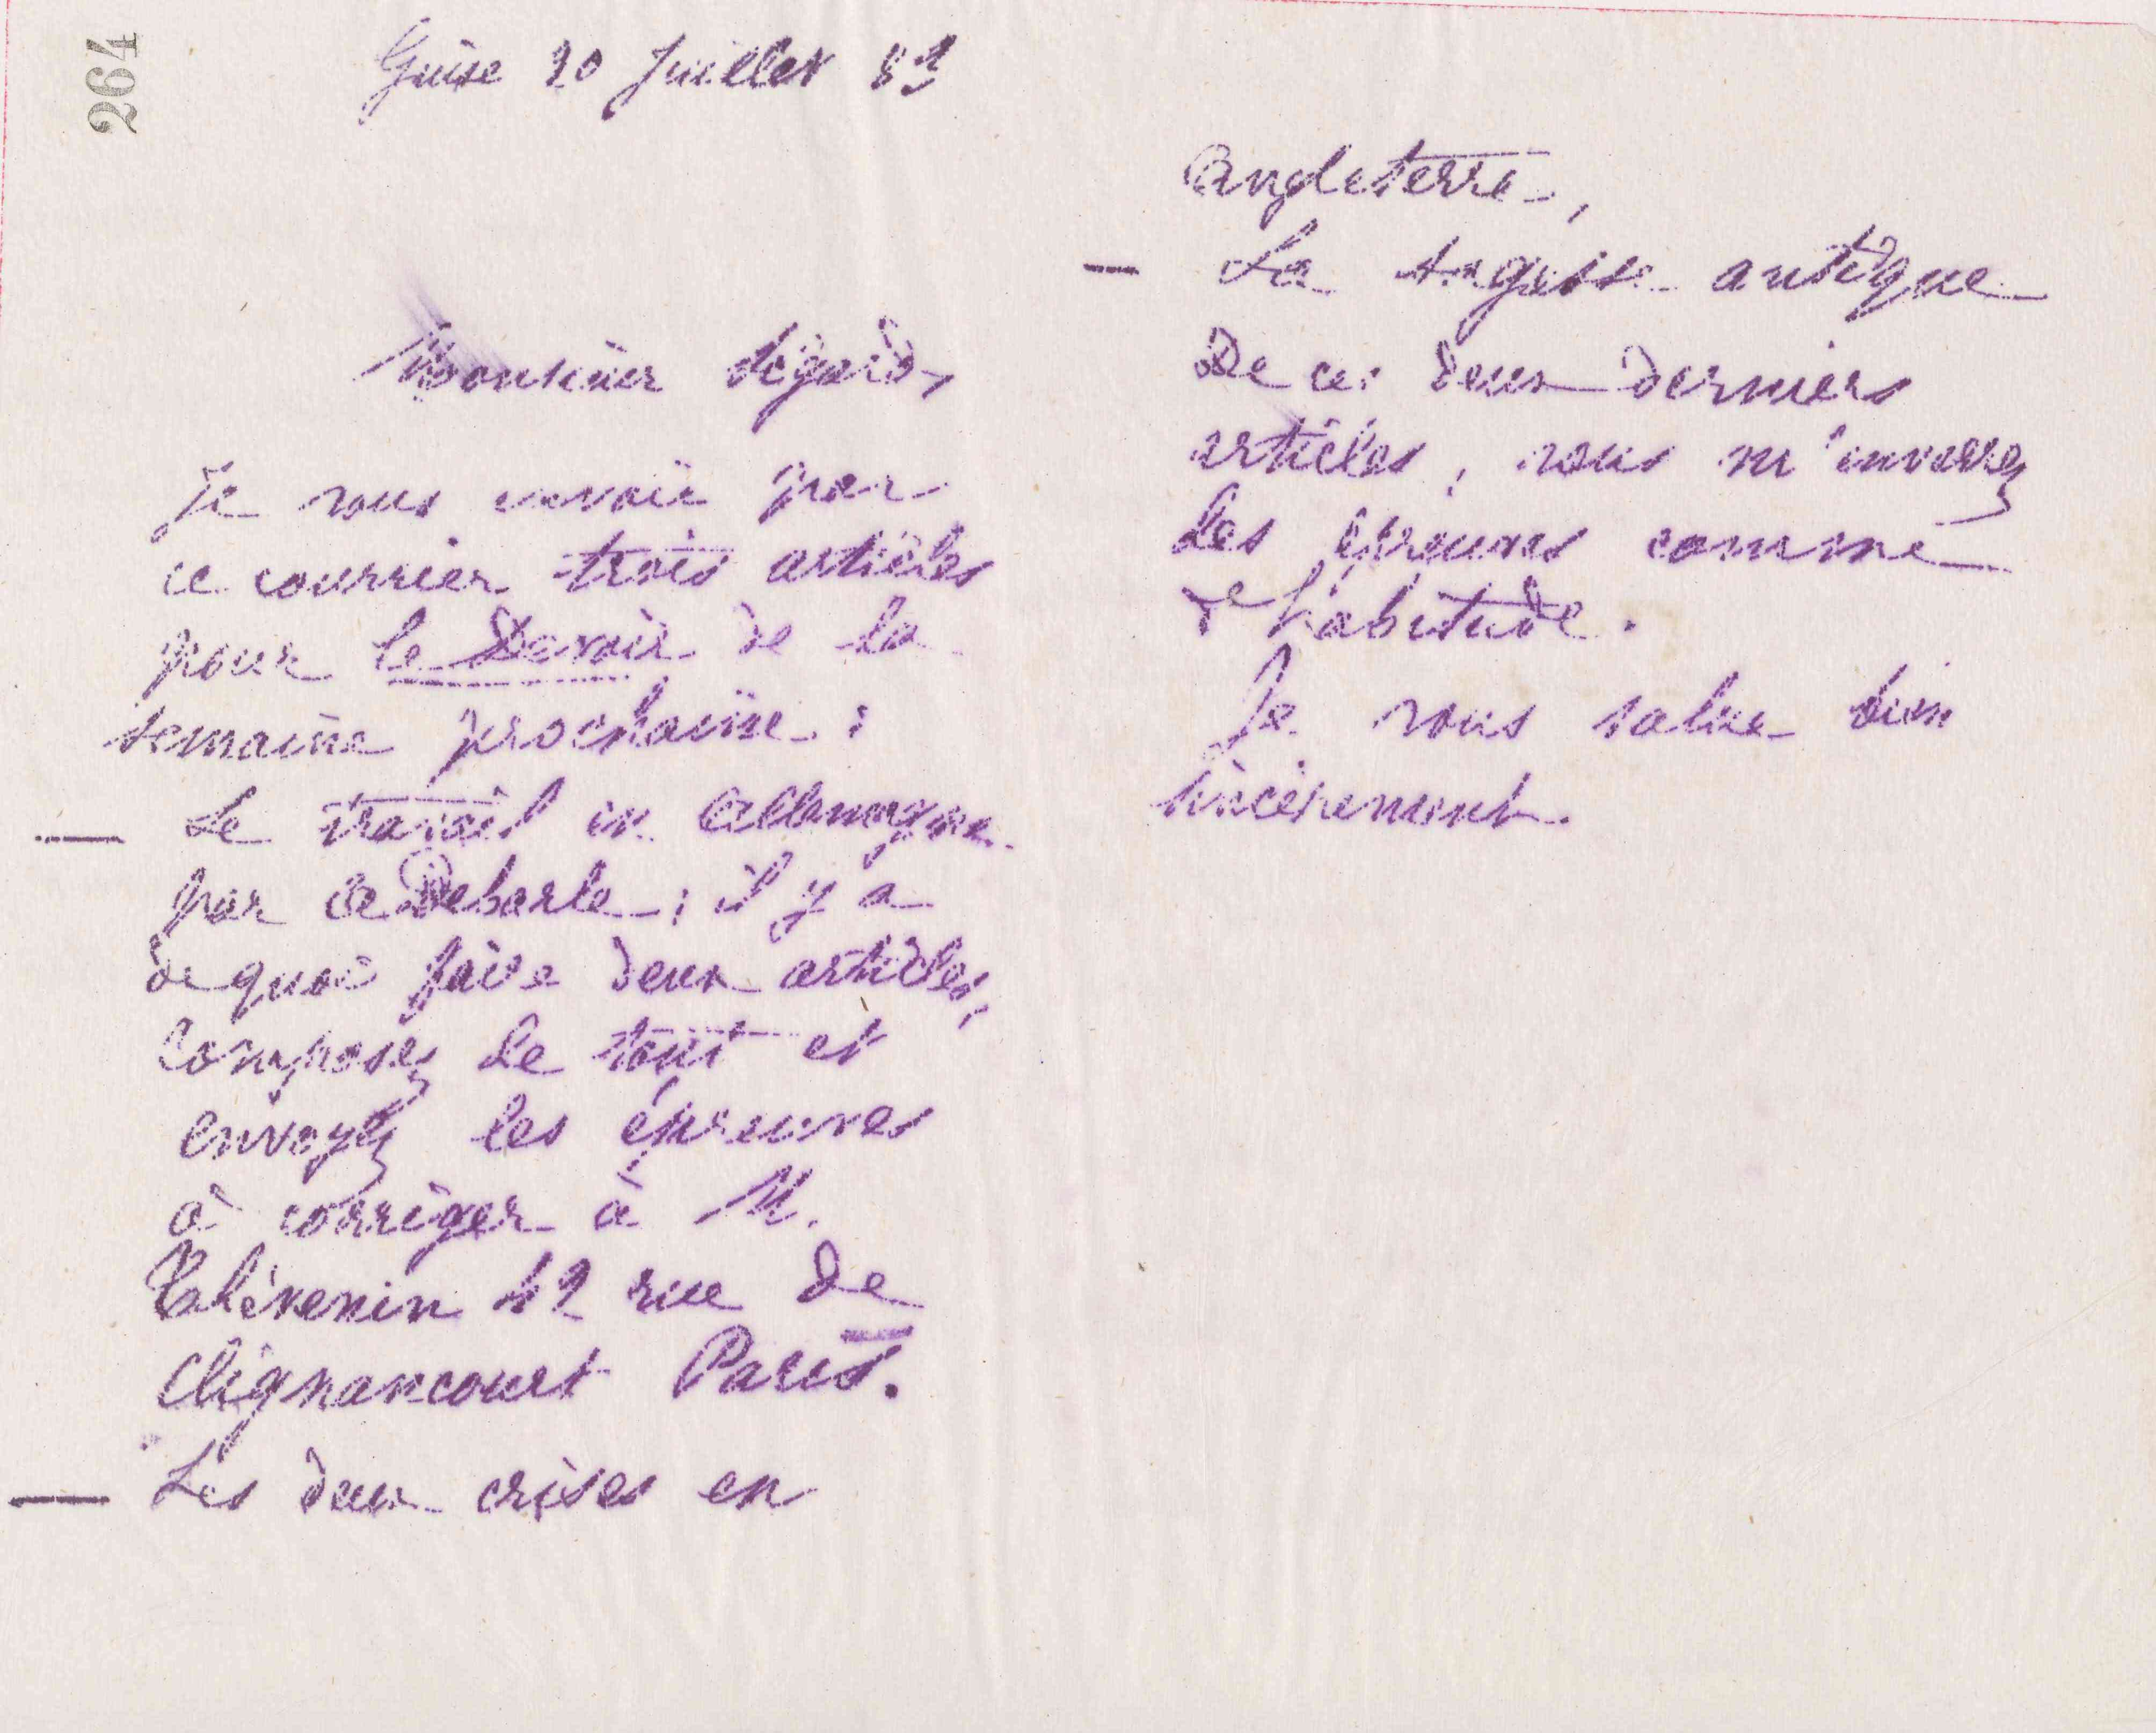 264
Guise 20 Juillet 83
Monsieur
Je vous envoie par
ce courrier trois articles
pour le Devoir de la
semaine prochaine :
— Le travail en Allemagne
par ; il y a
de quoi faire deux articles,
Composez le tout et
envoyez les épreuves
à corriger à M.
Thévenin 42 rue de
Clignancourt Paris.
— Les deux crises en
Angleterre,
— La sagesse antique
De ces deux derniers
articles, vous m'enverrez
les épreuves comme
d'habitude.
Je vous salue bien
sincèrement.